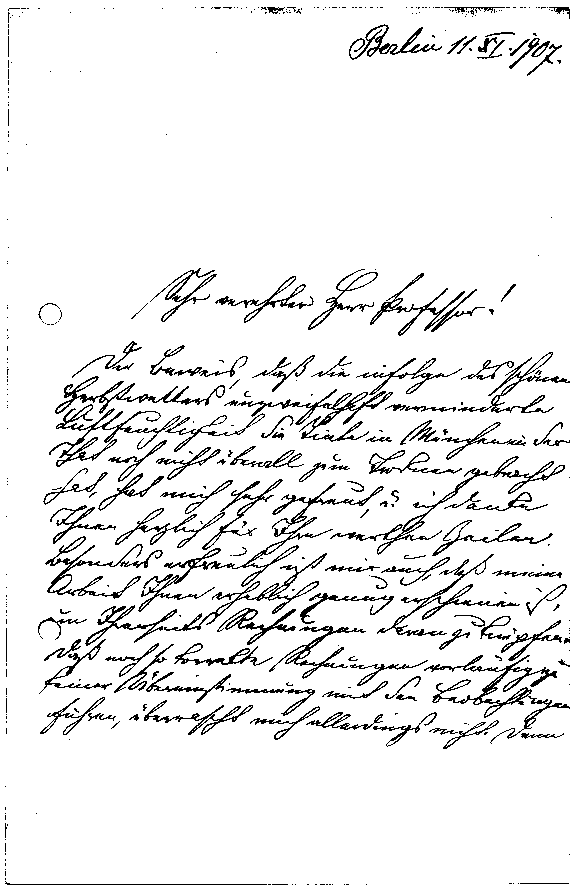 Berlin 11. XI. 1907.
Sehr verehrter Herr Professor!
Der Beweis, daß die infolge des schönen
Herbstwetters unzweifelhaft verminderte
Luftfeuchtigkeit die Tinte in München in der
That noch nicht überall zum Trocknen gebracht
hat, hat mich sehr gefreut, u. ich danke
Ihnen herzlich für Ihre werthen Zeilen.
Besonders erfreulich ist mir auch, daß meine
Arbeit Ihnen erheblich genug erschienen ist,
um Ihrerseits Rechnungen daran zu knüpfen.
Daß noch so korrekte Rechnungen vorläufig zu
keiner Übereinstimmung mit den Beobachtungen
führen, überrascht mich allerdings nicht. Denn